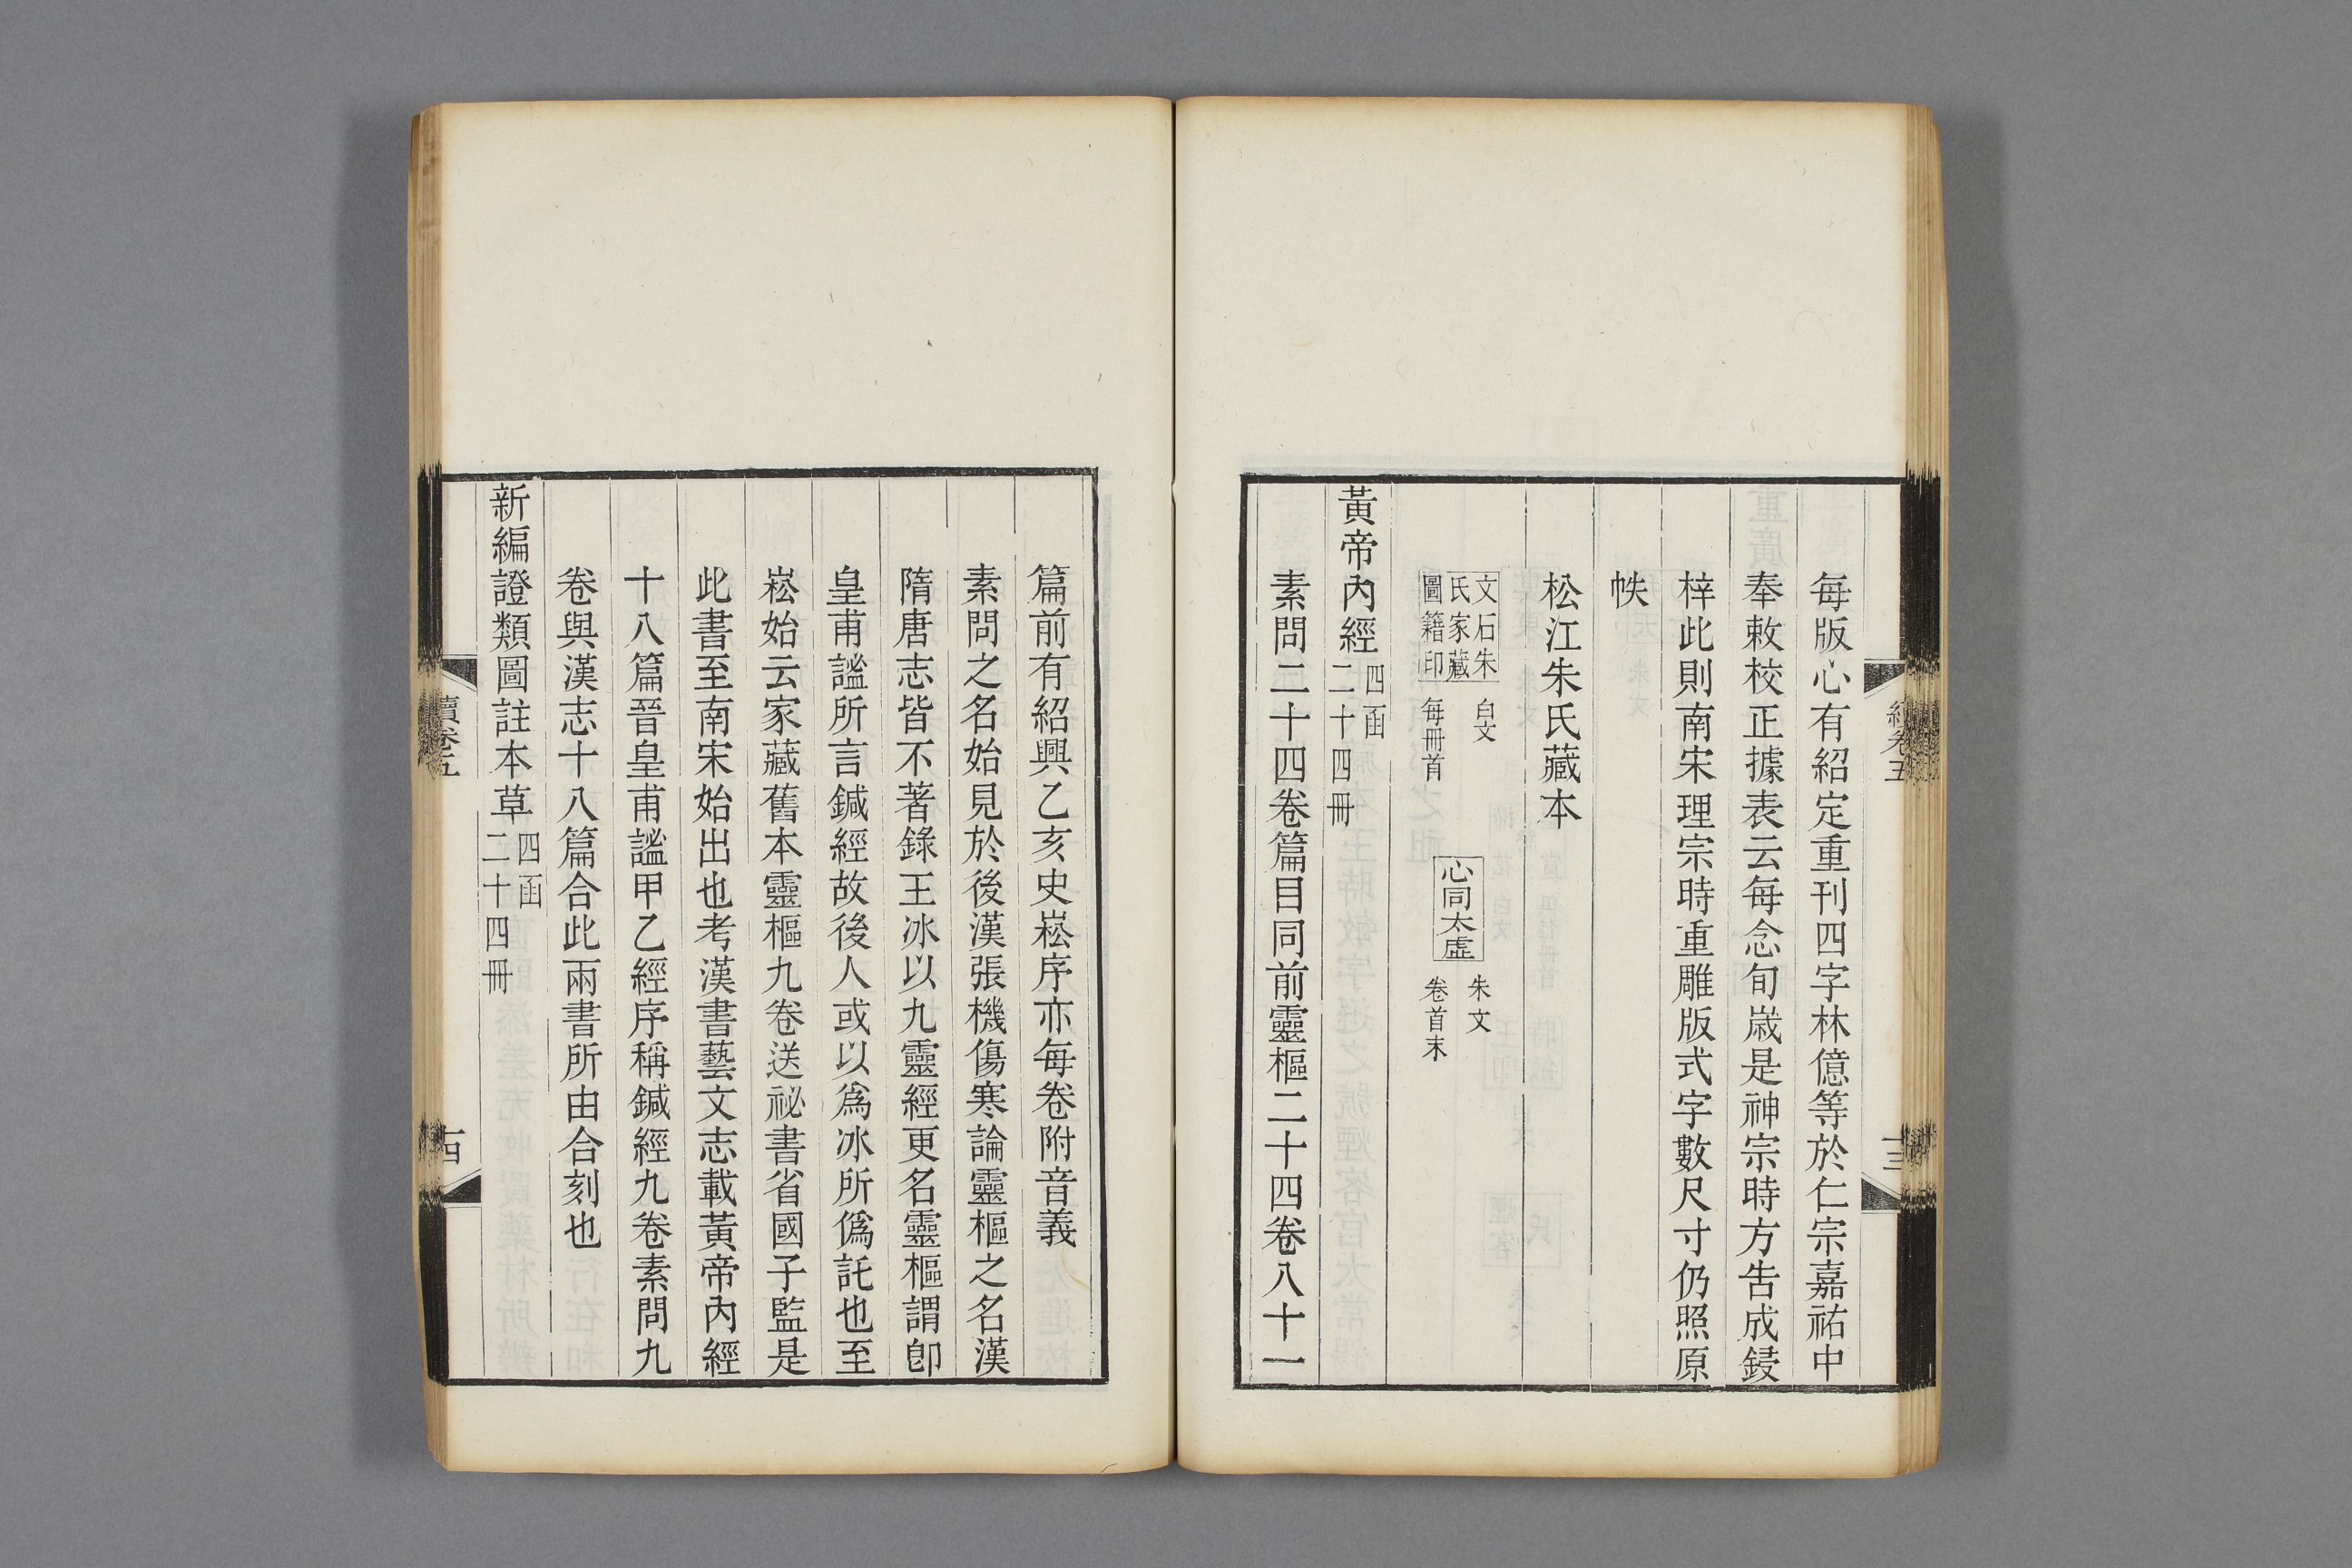 每版心有紹定重刊四字林億等於仁宗嘉祐中
奉敕校正據表云每念旬歲是神宗時方吿成鋟
梓此則南宋理宗時重雕版式字數尺寸仍照原
帙
松江朱氏藏本
文石朱
氏家藏
圖籍印
白文
每冊首
心同太虛
朱文
卷首末
黃帝內經
四函
二十四冊
素問二十四卷篇目同前靈樞二十四卷八十一
篇前有紹興乙亥史崧序亦每卷附音義
素問之名始見於後漢張機傷寒論靈樞之名漢
隋唐志皆不著錄王冰以九靈經更名靈樞謂卽
皇甫謐所言鍼經故後人或以爲冰所僞託也至
崧始云家藏舊本靈樞九卷送祕書省國子監是
此書至南宋始出也考漢書藝文志載黃帝內經
十八篇晉皇甫謐甲乙經序稱鍼經九卷素問九
卷與漢志十八篇合此兩書所由合刻也
新編證類圖註本草
四函
二十四冊
續卷五
十四